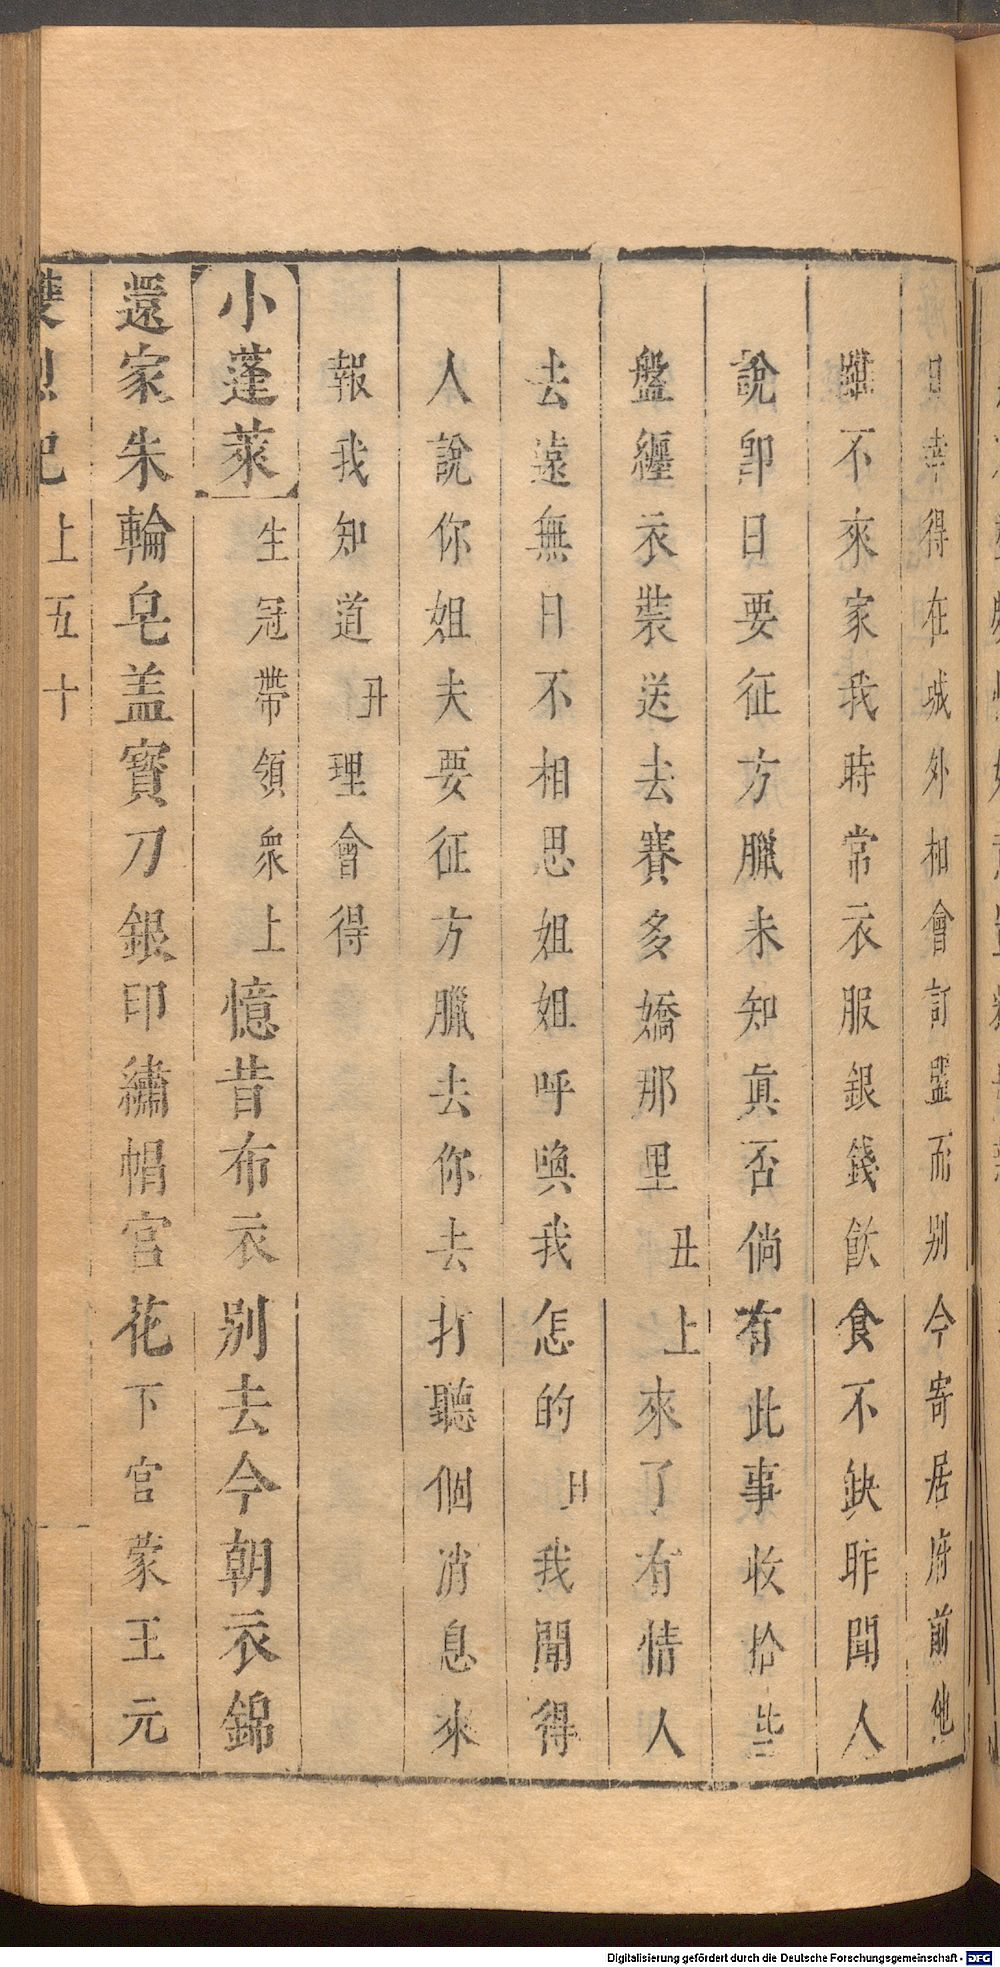 日幸得在城外相會訂盟而别今寄居府前他
雖不來家我時常衣服銀錢飲食不缺昨聞人
說卽日要征方臘未知真否倘有此事收拾些
盤纏衣裝送去賽多嬌那里丑上來了有情人
去遠無日不相思姐姐呼喚我怎的旦我聞得
人說你姐夫要征方臘去你去打聽個消息來
報我知道丑理會得
小蓬萊生冠帶領衆上憶昔布衣别去今朝衣錦
還家朱輪皂盖寳刀銀印繡帽宮花下官蒙王元
雙烈記上五十
Digitalisierung gefördert durch die Deutsche Forschungsgemeinschaft - DFG